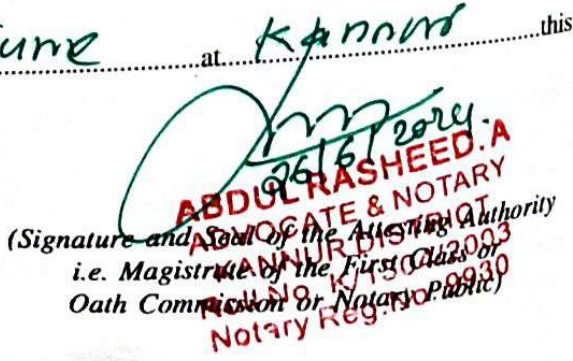 June at Kannur this
26/6/2024.
ABDUL RASHEED.A
ADVOCATE & NOTARY
KANNUR DISTRICT
Roll No. K/1307/2003
Notary Reg.No. 9930
(Signature and Seal of the Attesting Authority
i.e. Magistrate of the First Class or
Oath Commission or Notary Public)